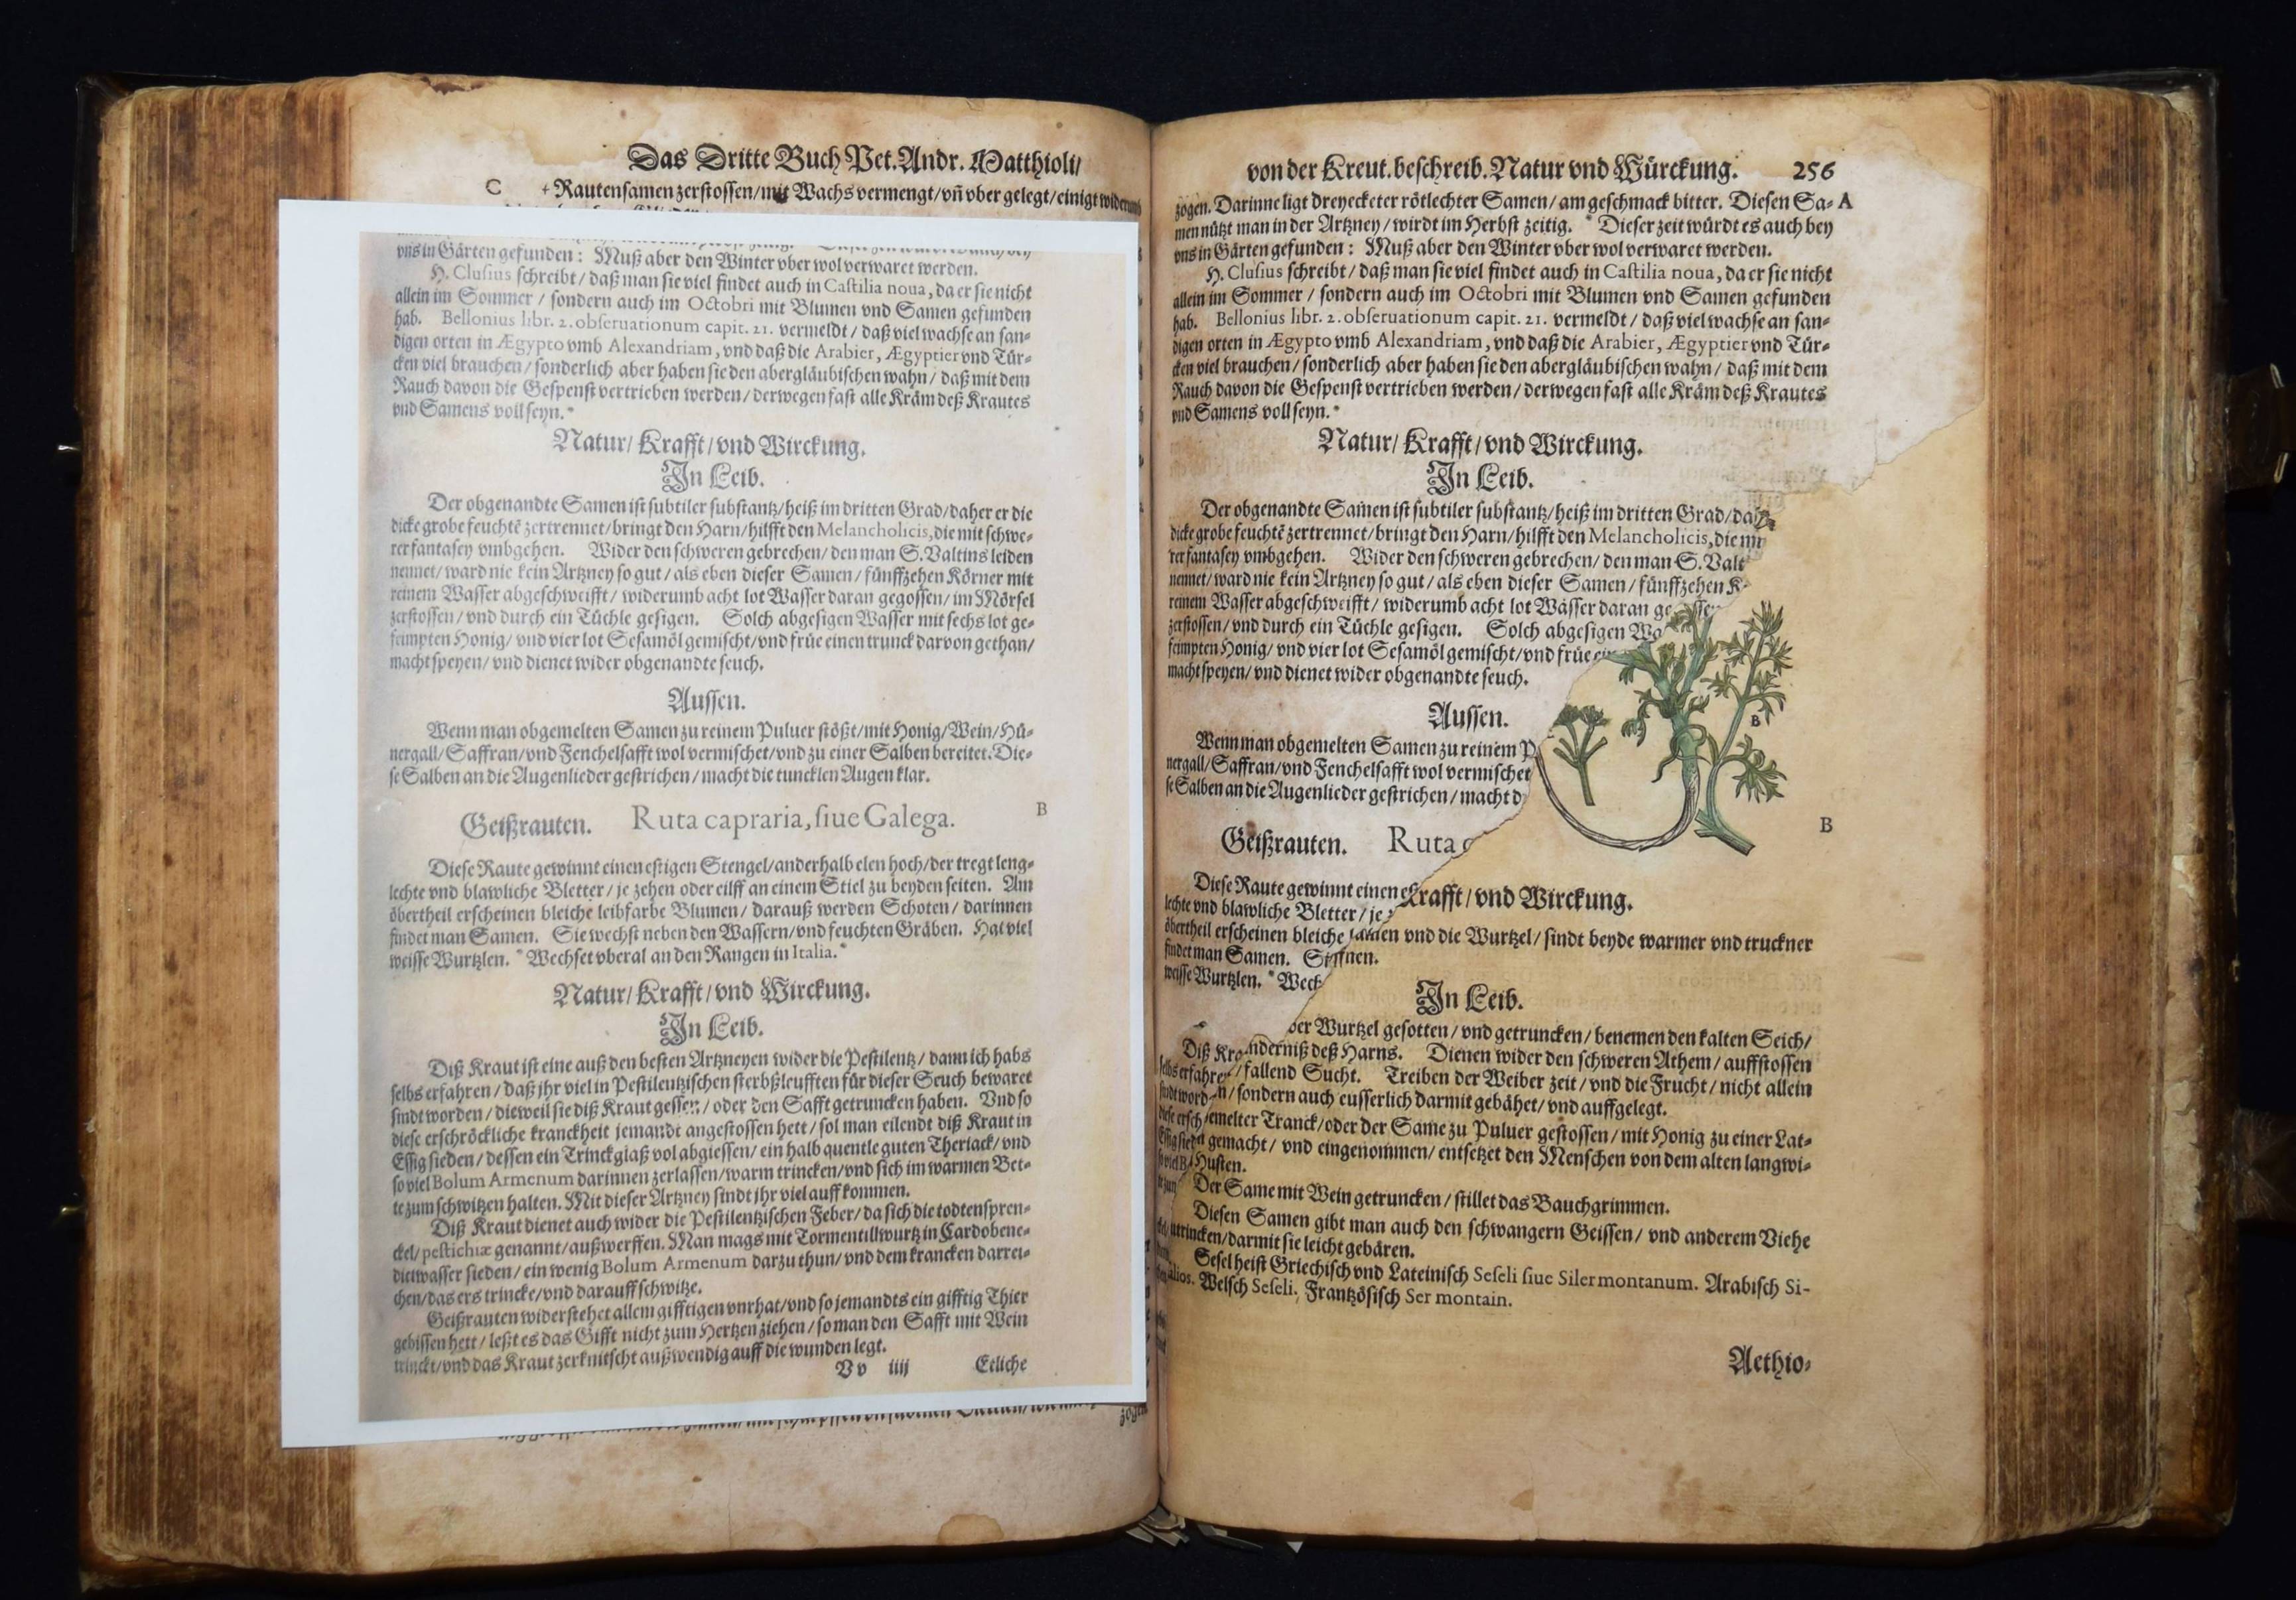 Das Dritte Buch Pet. Andr. Matthioli/
C
+ Rautensamen zerstossen/mit Wachs vermengt/vñ vber gelegt/einigt widerumb
vns in Gärten gefunden: Muß aber den Winter vber wol verwaret werden.
H. Clusius schreibt/daß man sie viel findet auch in Castilia noua, da er sie nicht
allein im Sommer/sondern auch im Octobri mit Blumen vnd Samen gefunden
hab. Bellonius libr. 2. obseruationum capit. 21. vermeldt/daß viel wachse an san-
digen orten in Ægypto vmb Alexandriam, vnd daß die Arabier, Ægyptier vnd Tür-
cken viel brauchen/sonderlich aber haben sie den abergläubischen wahn/daß mit dem
Rauch davon die Gespenst vertrieben werden/derwegen fast alle Kräm deß Krautes
vnd Samens voll seyn.*
Natur/Krafft/vnd Wirckung.
In Leib.
Der obgenandte Samen ist subtiler substantz/heiß im dritten Grad/daher er die
dicke grobe feuchtẽ zertrennet/bringt den Harn/hilfft den Melancholicis, die mit schwe-
rer fantasey vmbgehen. Wider den schweren gebrechen/den man S. Valtins leiden
nennet/ward nie kein Artzney so gut/als eben dieser Samen/fünffzehen Körner mit
reinem Wasser abgeschweifft/widerumb acht lot Wasser daran gegossen/im Mörsel
zerstossen/vnd durch ein Tüchle gesigen. Solch abgesigen Wasser mit sechs lot ge-
feimpten Honig/vnd vier lot Sesamöl gemischt/vnd früe einen trunck darvon gethan/
macht speyen/vnd dienet wider obgenandte seuch.
Aussen.
Wenn man obgemelten Samen zu reinem Puluer stößt/mit Honig/Wein/Hü-
nergall/Saffran/vnd Fenchelsafft wol vermischet/vnd zu einer Salben bereitet. Die-
se Salben an die Augenlieder gestrichen/macht die tuncklen Augen klar.
B
Geißrauten. Ruta capraria, siue Galega.
Diese Raute gewinnt einen estigen Stengel/anderhalb elen hoch/der tregt leng-
lechte vnd blawliche Bletter/je zehen oder eilff an einem Stiel zu beyden seiten. Am
öbertheil erscheinen bleiche leibfarbe Blumen/darauß werden Schoten/darinnen
findet man Samen. Sie wechst neben den Wassern/vnd feuchten Gräben. Hat viel
weisse Wurtzlen. * Wechset vberal an den Rangen in Italia.*
Natur/Krafft/vnd Wirckung.
In Leib.
Diß Kraut ist eine auß den besten Artzneyen wider die Pestilentz/dann ich habs
selbs erfahren/daß jhr viel in Pestilentzischen sterbßleufften für dieser Seuch bewaret
sindt worden/dieweil sie diß Kraut gessen/oder den Safft getruncken haben. Vnd so
diese erschröckliche kranckheit jemandt angestossen hett/sol man eilendt diß Kraut in
Essig sieden/dessen ein Trinckglaß vol abgiessen/ein halb quentle guten Theriack/vnd
so viel Bolum Armenum darinnen zerlassen/warm trincken/vnd sich im warmen Bet-
te zum schwitzen halten. Mit dieser Artzney sindt jhr viel auffkommen.
Diß Kraut dienet auch wider die Pestilentzischen Feber/da sich die todtenspren-
ckel/pestichiæ genannt/außwerffen. Man mags mit Tormentillwurtz in Cardobene-
dictwasser sieden/ein wenig Bolum Armenum darzu thun/vnd dem krancken darrei-
chen/das ers trincke/vnd darauff schwitze.
Geißrauten widerstehet allem gifftigen vnrhat/vnd so jemandts ein gifftig Thier
gebissen hett/leßt es das Gifft nicht zum Hertzen ziehen/so man den Safft mit Wein
trinckt/vnd das Kraut zerknitscht außwendig auff die wunden legt.
Vv iiij Etliche
von der Kreut. beschreib. Natur vnd Würckung. 256
zogen. Darinne ligt dreyecketer rötlechter Samen/am geschmack bitter. Diesen Sa- A
men nützt man in der Artzney/wirdt im Herbst zeitig. * Dieser zeit würdt es auch bey
vns in Gärten gefunden: Muß aber den Winter vber wol verwaret werden.
H. Clusius schreibt/daß man sie viel findet auch in Castilia noua, da er sie nicht
allein im Sommer/sondern auch im Octobri mit Blumen vnd Samen gefunden
hab. Bellonius libr. 2. obseruationum capit. 21. vermeldt/daß viel wachse an san-
digen orten in Ægypto vmb Alexandriam, vnd daß die Arabier, Ægyptier vnd Tür-
cken viel brauchen/sonderlich aber haben sie den abergläubischen wahn/daß mit dem
Rauch davon die Gespenst vertrieben werden/derwegen fast alle Kräm deß Krautes
vnd Samens voll seyn.*
Natur/Krafft/vnd Wirckung.
In Leib.
Der obgenandte Samen ist subtiler substantz/heiß im dritten Grad/
dicke grobe feuchtẽ zertrennet/bringt den Harn/hilfft den Melancholicis, die
rer fantasey vmbgehen. Wider den schweren gebrechen/den man S. Valt
nennet/ward nie kein Artzney so gut/als eben dieser Samen/fünffzehen K
reinem Wasser abgeschweifft/widerumb acht lot Wasser daran
zerstossen/vnd durch ein Tüchle gesigen. Solch abgesigen
feimpten Honig/vnd vier lot Sesamöl gemischt/vnd früe
macht speyen/vnd dienet wider obgenandte seuch.
B
Aussen.
Wenn man obgemelten Samen zu reinem P
nergall/Saffran/vnd Fenchelsafft wol vermischet
se Salben an die Augenlieder gestrichen/macht d
B
Geißrauten. Ruta
Diese Raute gewinnt einen
Krafft/vnd Wirckung.
lechte vnd blawliche Bletter/je
öbertheil erscheinen bleiche
Samen vnd die Wurtzel/sindt beyde warmer vnd truckner
findet man Samen.
weisse Wurtzlen. * Wech
In Leib.
der Wurtzel gesotten/vnd getruncken/benemen den kalten Seich/
Diß Kra
nderniß deß Harns. Dienen wider den schweren Athem/auffstossen
fallend Sucht. Treiben der Weiber zeit/vnd die Frucht/nicht allein
n/sondern auch eusserlich darmit gebähet/vnd auffgelegt.
emelter Tranck/oder der Same zu Puluer gestossen/mit Honig zu einer Lat-
gemacht/vnd eingenommen/entsetzet den Menschen von dem alten langwi-
Husten.
Der Same mit Wein getruncken/stillet das Bauchgrimmen.
Diesen Samen gibt man auch den schwangern Geissen/vnd anderem Viehe
trincken/darmit sie leicht gebären.
Sesel heist Griechisch vnd Lateinisch Seseli siue Siler montanum. Arabisch Si-
alios. Welsch Seseli. Frantzösisch Ser montain.
Aethio-